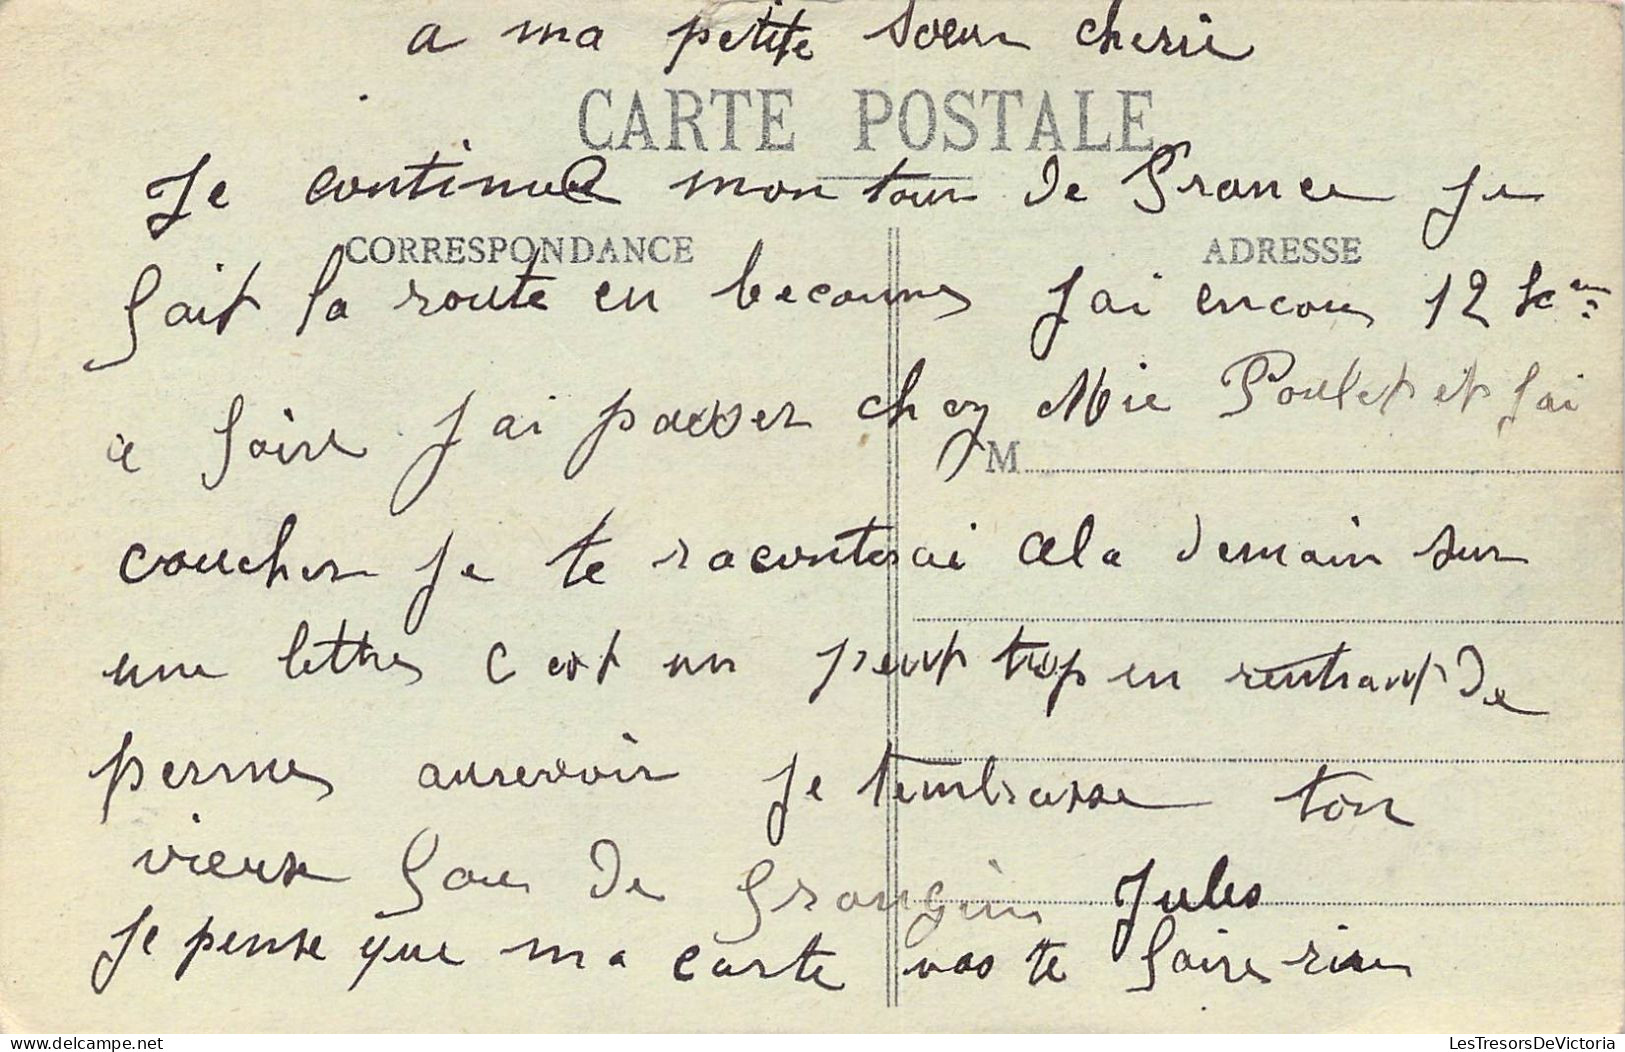 a ma petite soeur cherie
CARTE POSTALE
Je continue mon tour de France Je
CORRESPONDANCE ADRESSE
fait la route en becanne Jai encore 12 km
a faire Jai passer chez Mie Poulet et Jai
M
coucher Je te raconterai cela demain sur
une lettre c est un peut trop en rentrant de
perme aurevoir Je tembrasse ton
vieux fou de frangin Jules
Je pense que ma carte vas te faire rire
LesTresorsDeVictoria
Delcampe.net